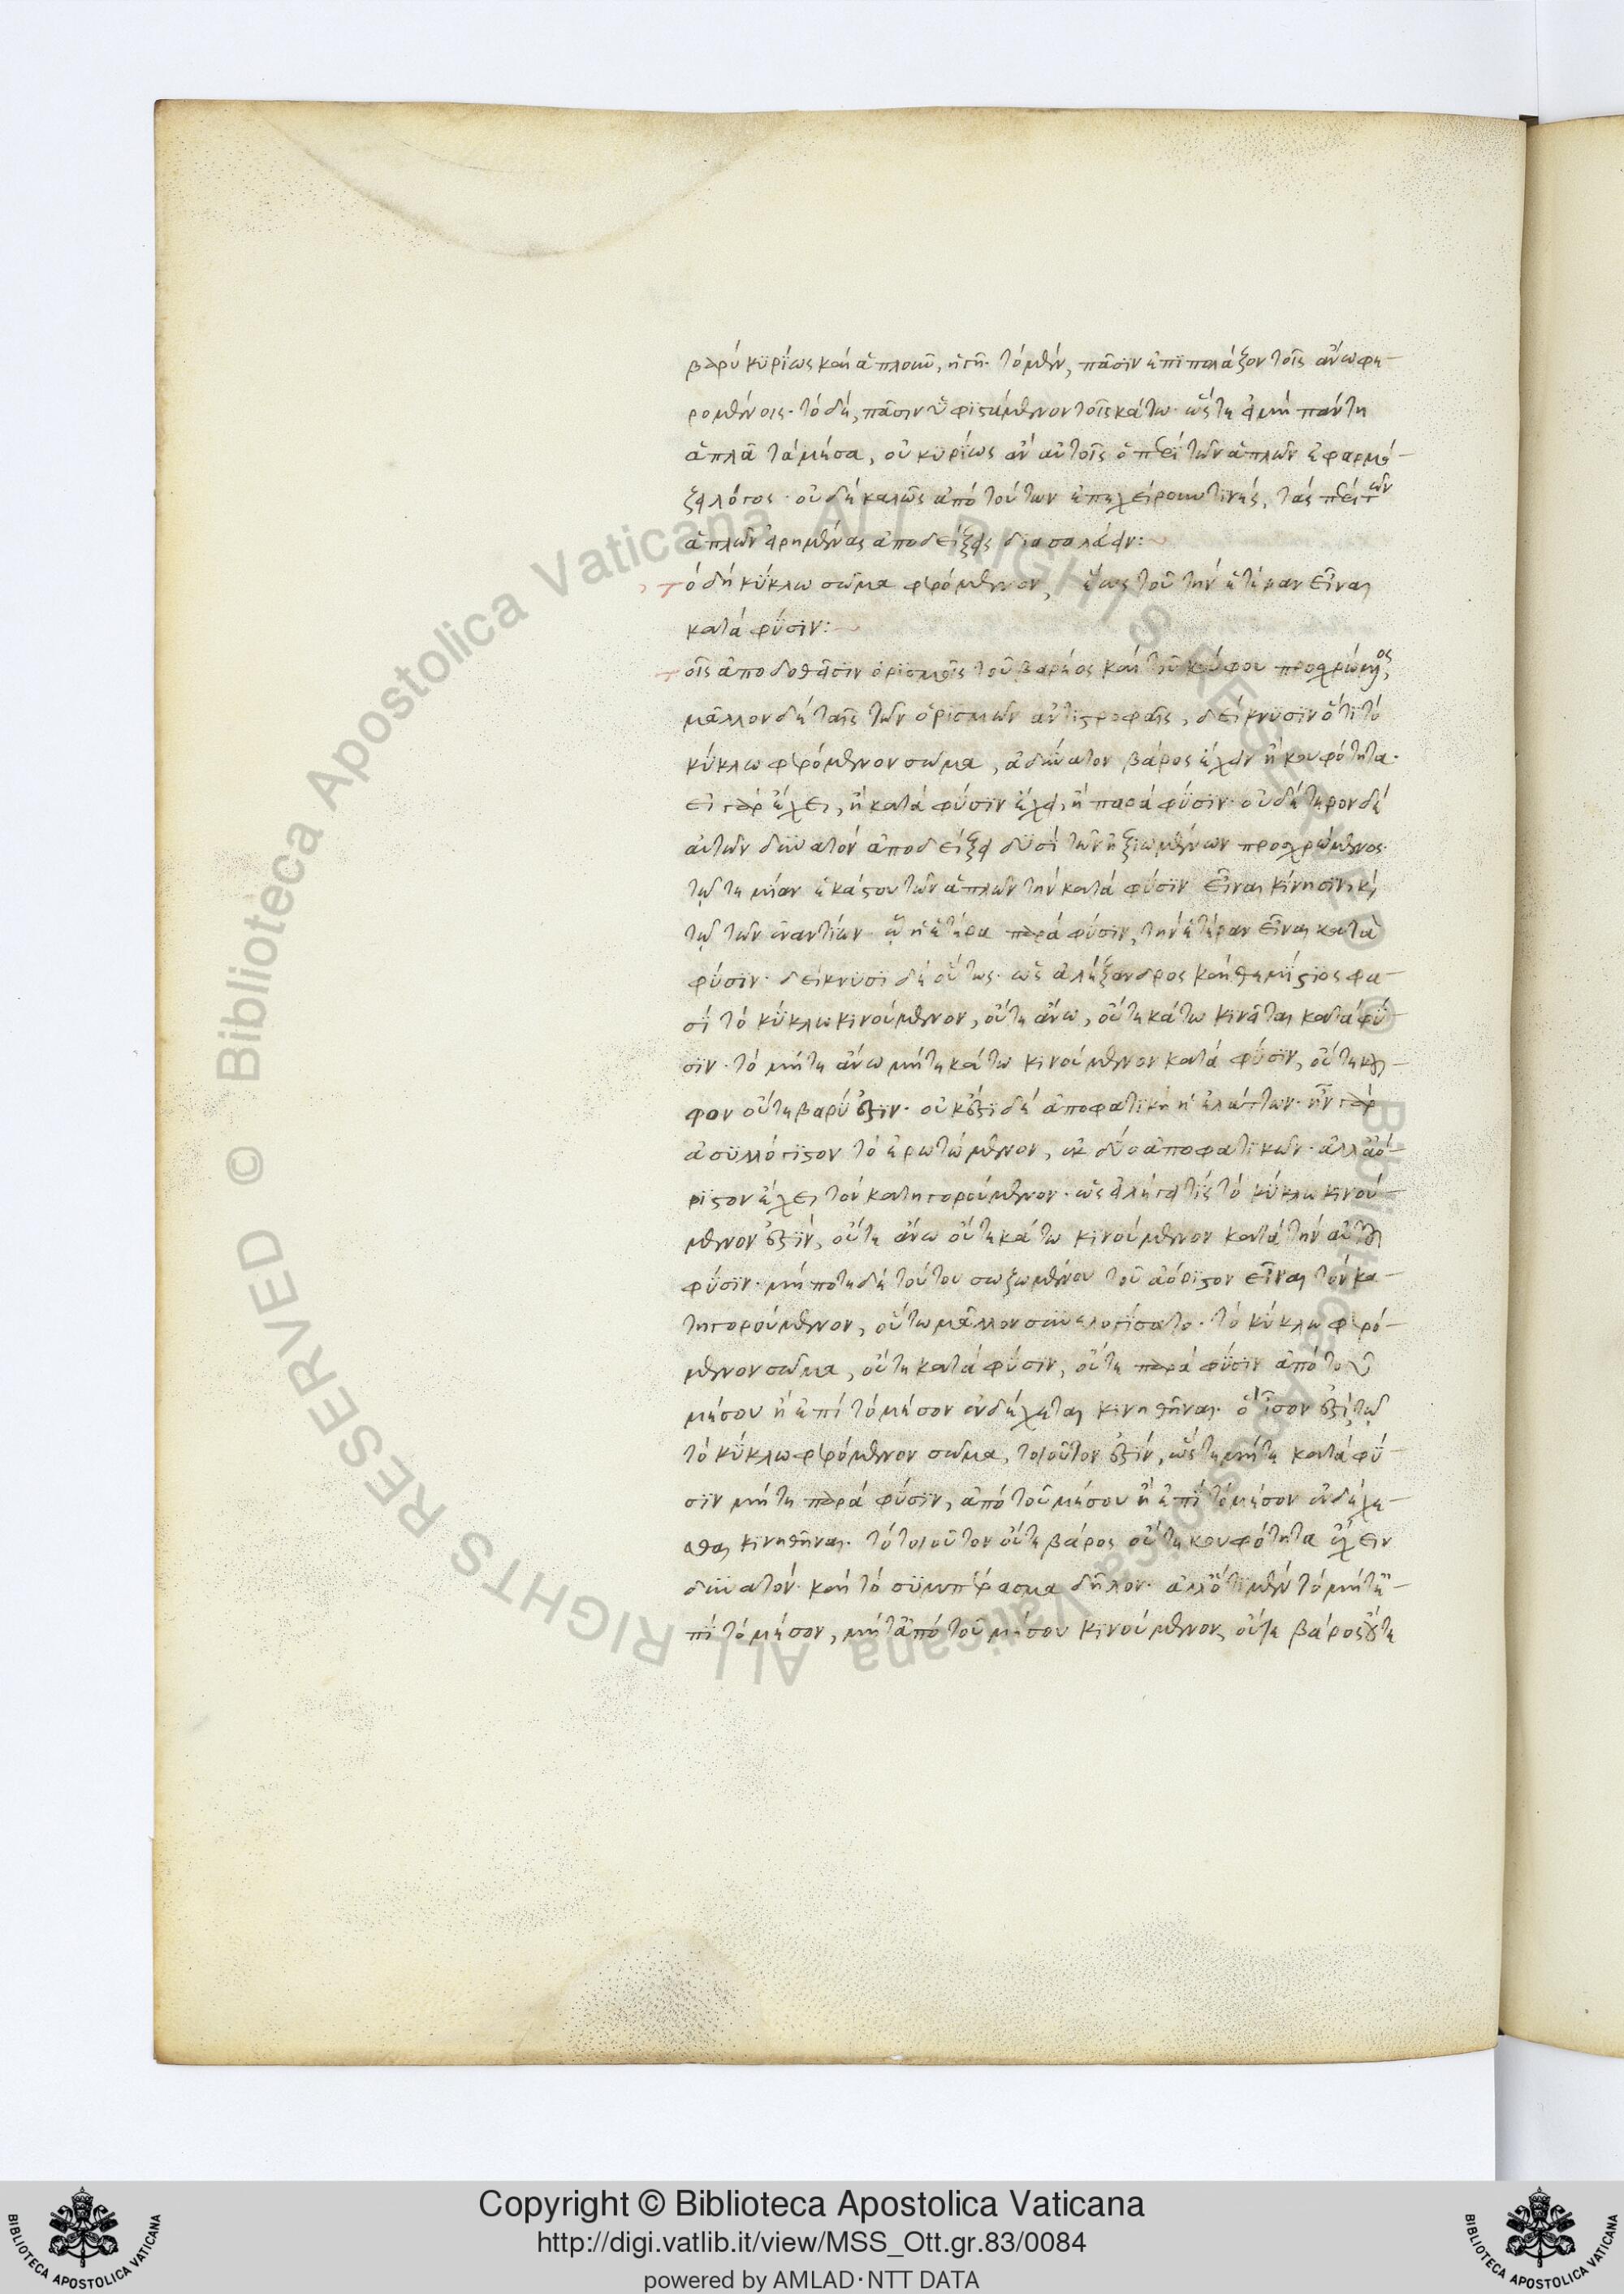 βαρὺ κυρίως καὶ ἁπλοῦν, ἐστι· τὸ μὲν, πᾶσιν ἐπιπολάζον τοῖς ἀνωφε-
ρομένοις· τὸ δὲ, πᾶσιν ὑφιστάμενον τοῖς κάτω· ὥστε εἰ μὴ πάντη
ἁπλᾶ τὰ μέσα, οὐ κυρίως ἂν αὐτοῖς ὁ περὶ τῶν ἁπλῶν ἐφαρμό-
ζει λόγος· οὐδὲ καλῶς ἀπὸ τούτων ἐπιχειροῦσι τινὲς, τὰς περὶ τῶν
ἁπλῶν εἰρημένας ἀποδείξεις διασαλεύειν:
τὸ δὲ κύκλω σῶμα φερόμενον, ἕως τοῦ τὴν ἑτέραν εἶναι
κατὰ φύσιν:
τοῖς ἀποδοθεῖσιν ὁρισμοῖς τοῦ βαρέος καὶ τοῦ κούφου προσχρώμενος,
μᾶλλον δὲ ταῖς τῶν ὁρισμῶν ἀντιστροφαῖς, δείκνυσιν ὅτι τὸ
κύκλω φερόμενον σῶμα, ἀδύνατον βάρος ἔχειν ἢ κουφότητα·
εἰ γὰρ ἔχει, ἢ κατὰ φύσιν ἔχει, ἢ παρὰ φύσιν· οὐδέτερον δὲ
αὐτῶν δυνατὸν ἀποδείξει δυσὶ τῶν ἠξιωμένων προσχρώμενος·
τῷ τε μίαν ἑκάστου τῶν ἁπλῶν τὴν κατὰ φύσιν εἶναι κίνησιν, καὶ
τῷ τῶν ἐναντίων ᾧ ἡ ἑτέρα παρὰ φύσιν, τὴν ἑτέραν εἶναι κατὰ
φύσιν· δείκνυσι δὲ οὕτως· ὡς ἀλέξανδρος καὶ θεμίστιος φα-
σὶ τὸ κύκλω κινούμενον, οὔτε ἄνω, οὔτε κάτω κινεῖται κατὰ φύ-
σιν· τὸ μήτε ἄνω μήτε κάτω κινούμενον κατὰ φύσιν, οὔτε κοῦ-
φον οὔτε βαρύ ἐστιν· οὐκ ἔστι δὲ ἀποφατικὴ ἡ ἐλάττων· ἦν γὰρ
ἀσυλλόγιστον τὸ ἐρωτώμενον, ἐκ δύο ἀποφατικῶν· ἀλλ' ἀό-
ριστον ἔχει τὸν κατηγορούμενον· ὡς εἰ λέγει τὶς τὸ κύκλω κινού-
μενον ἐστὶν, οὔτε ἄνω οὔτε κάτω κινούμενον κατὰ τὴν αὐτοῦ
φύσιν· μήποτε δὲ τούτου σωζομένου τοῦ ἀόριστον εἶναι τὸν κα-
τηγορούμενον, οὕτω μᾶλλον συνελογίσατο· τὸ κύκλω φερό-
μενον σῶμα, οὔτε κατὰ φύσιν, οὔτε παρὰ φύσιν ἀπὸ τοῦ
μέσου ἢ ἐπὶ τὸ μέσον ἐνδέχεται κινηθῆναι· ὃ ἴσον ἐστὶ τῷ
τὸ κύκλω φερόμενον σῶμα, τοιοῦτον ἐστὶν, ὥστε μήτε κατὰ φύ-
σιν μήτε παρὰ φύσιν, ἀπὸ τοῦ μέσου ἢ ἐπὶ τὸ μέσον ἐνδέχε-
σθαι κινηθῆναι· τὸ τοιοῦτον οὔτε βάρος οὔτε κουφότητα ἔχειν
δυνατόν· καὶ τὸ συμπέρασμα δῆλον· ἀλλ' ὅτι μὲν τὸ μήτε ἐ-
πὶ τὸ μέσον, μήτ' ἀπὸ τοῦ μέσου κινούμενον, οὔτε βάρος οὔτε
Copyright © Biblioteca Apostolica Vaticana
http://digi.vatlib.it/view/MSS_Ott.gr.83/0084
powered by AMLAD·NTT DATA
BIBLIOTECA APOSTOLICA VATICANA
BIBLIOTECA APOSTOLICA VATICANA
© Biblioteca Apostolica Vaticana ALL RIGHTS RESERVED
© Biblioteca Apostolica Vaticana ALL RIGHTS RESERVED